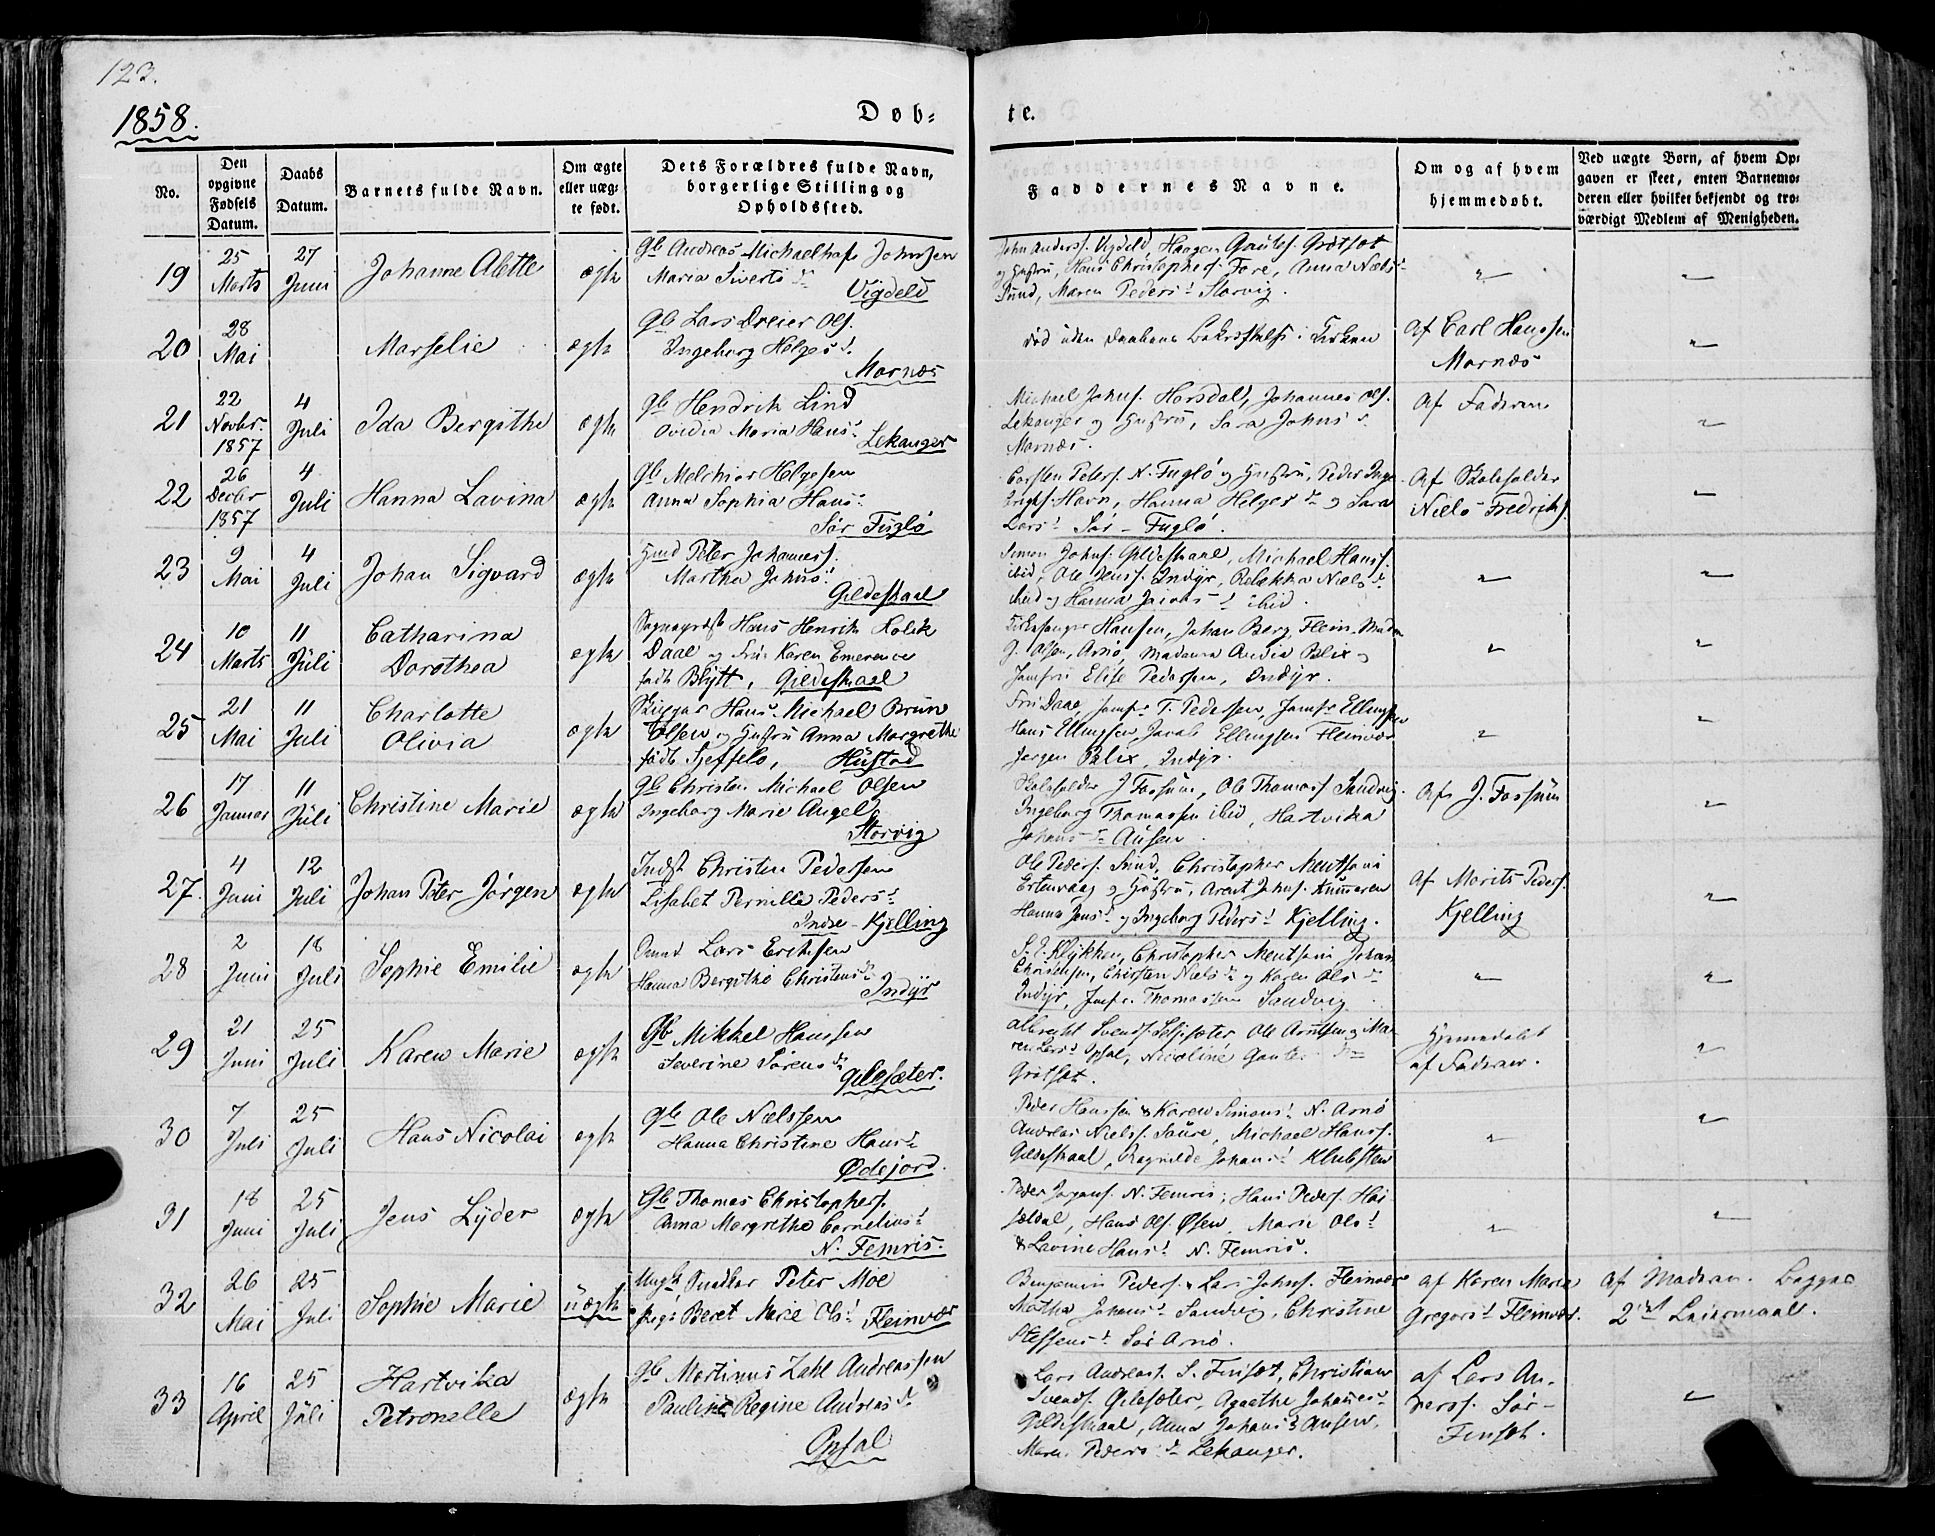 123.
1858.
Døb-
te.
No.
Den opgivne Fødsels Datum.
Daabs Datum.
Barnets fulde Navn.
Om ægte eller uæg- te født.
Dets Forældres fulde Navn, borgerlige Stilling og Opholdssted.
Faddernes Navne.
Om og af hvem hjemmedøbt.
Ved uægte Børn, af hvem Op- gaven er skeet, enten Barnemo- deren eller hvilket bekjendt og tro- værdigt Medlem af Menigheden.
19
25 Marts
27 Juni
Johanne Alette
ægte
Gb Andreas Michael Johnsen
Maria Siverts
Vigdeld
John Anders. Vigdeld Haagen Gautes. Grøtsæt
og Hustru, Hans Christophers. Fore, Anna Niels
Sund, Maren Peders Storvig.
"
"
20
28 Mai
Marselie
ægte
Gb Lars Dreier Ols.
Ingeborg Helges
Mornæs
død uden Daabens Bekræftelse i Kirken
Af Carl Hanssen
Mornæs
"
21
22 Novbr. 1857
4 Juli
Ida Bergithe
ægte
Gb Hendrik Lind
Ovidia Maria Hans
Lekanger
Michael Johns. Horsdal, Johannes Ols.
Lekanger og Hustru, Sara Johns
Mornæs.
Af Faderen
"
22
26 Decbr 1857
4 Juli
Hanna Lavina
ægte
Gb Melchior Helgesen
Anna Sophia Hans
Sør Fuglø
Carsten Peters. N. Fuglø og Hustru, Peder Inge-
brigts. Havn, Hanna Helges og Sara
Lars Sør-Fuglø.
Af Skoleholder
Niels Fredriks.
"
23
9 Mai
4 Juli
Johan Sigvard
ægte
Hmd Peter Johannes.
Martha Johns
Gildeskaal
Simon Johns. Gildeskaal, Michael Hans.
ibid, Ole Jens. Indyr, Rebekka Niels
ibid og Hanna Jacobs ibid.
"
"
24
10 Marts
11 Juli
Catharina Dorothea
ægte
Sognepræst Hans Henrik Kolck
Daae og Fru Karen Emerence
født Blytt, Gildeskaal
Kirkesanger Hansen, Johan Berg Flein, Madm
J. Olsen, Arnø, Madama Andia Blix og
Jomfru Elise Pedersen, Indyr.
"
"
25
21 Mai
11 Juli
Charlotte Olivia
ægte
Skipper Hans Michael Bruun
Olsen og Hustru Anna Margrethe
født Sjeffelo, Hustad
Fru Daae, Jomfr T. Pedersen, Jomfr Ellingsen
Hans Ellingsen, Jacob Ellingsen Fleinvær
Jørgen Blix, Indyr.
"
"
26
17 Januar
11 Juli
Christine Marie
ægte
Gb Christen Michael Olsen
Ingeborg Marie Angel
Storvig
Skoleholder J Fossum, Ole Thomas. Sandvig.
Ingeborg Thomassen ibid, Hartvika
Johans Ausen.
Af J. Fossum
"
27.
4 Juni
12 Juli
Johan Peter Jørgen
ægte
Inds Christen Pedersen
Lisabet Pernille Peders
Indre-Kjelling
Ole Peders. Sund, Christopher Mentsoni
Ertenvaag og Hustru, Arent Johns. Kunnaren
Hanna Jens og Ingeborg Peders Kjelling.
Af Morits Peders.
Kjelling
"
28
2 Juni
18 Juli
Sophie Emilie
ægte
Lars Eriksen
Hanna Bergithe Christens
Indyr
S. E. Klykken, Christopher Mentsoni Johan
Christensen, Chirsten Niels og Karen Ols
Indyr, Jomfr. Thomassen Sandvig.
"
"
29
21 Juni
25 Juli
Karen Marie
ægte
Gb Mikkel Hanssen
Severine Sørens
Gilesæter.
Albregt Svends. Seljesæter, Ole Arntsen og Ma-
ren Lars Opsal, Nicoline Gautes
Grøtsæt.
Hjemmedøbt
af Faderen.
"
30
7 Juli
25 Juli
Hans Nicolai
ægte
Gb Ole Nielssen
Hanna Christine Hans
Ødejord.
Peder Hanssen & Karen Simons N. Arnø
Andreas Niels. Saure, Michael Hans.
Gildeskaal, Ragnilde Johans Klubsteen
"
"
31
18 Juni
25 Juli
Jens Lyder
ægte
Gb Thomas Christophers.
Anna Margrethe Cornelius
N. Femris.
Peder Johans. N. Femris, Hans Peders. Hos-
Hans Ols. Øsen, Marie Ols
& Lavine Hans N. Femris.
"
"
32
26 Mai
25 Juli
Sophie Marie
uægte
Ungk Snedker Peter Moe
Pige Beret Marie Ols Fleinvær
Benjamin Peders. & Lars Johns. Fleinvær
Martha Johans Sandvig, Christine
Steffens Sør Arnø.
Af Karen Maria
Gregors Fleinvær.
af Modren. Begges
2det Leiermaal.
33
16 April
25 Juli
Hartvika Petronelle
ægte
Gb Martinus Zahl Andreassen
Pauline Regine Andreas
Opsal
Lars Andreas. S. Finset, Christian
Svends. Gilesæter, Agathe Johannes
Gildeskaal, Anna Johans Ausen,
Maren Peders Lekanger.
af Lars An-
dreas. Sør-
Finset.
"